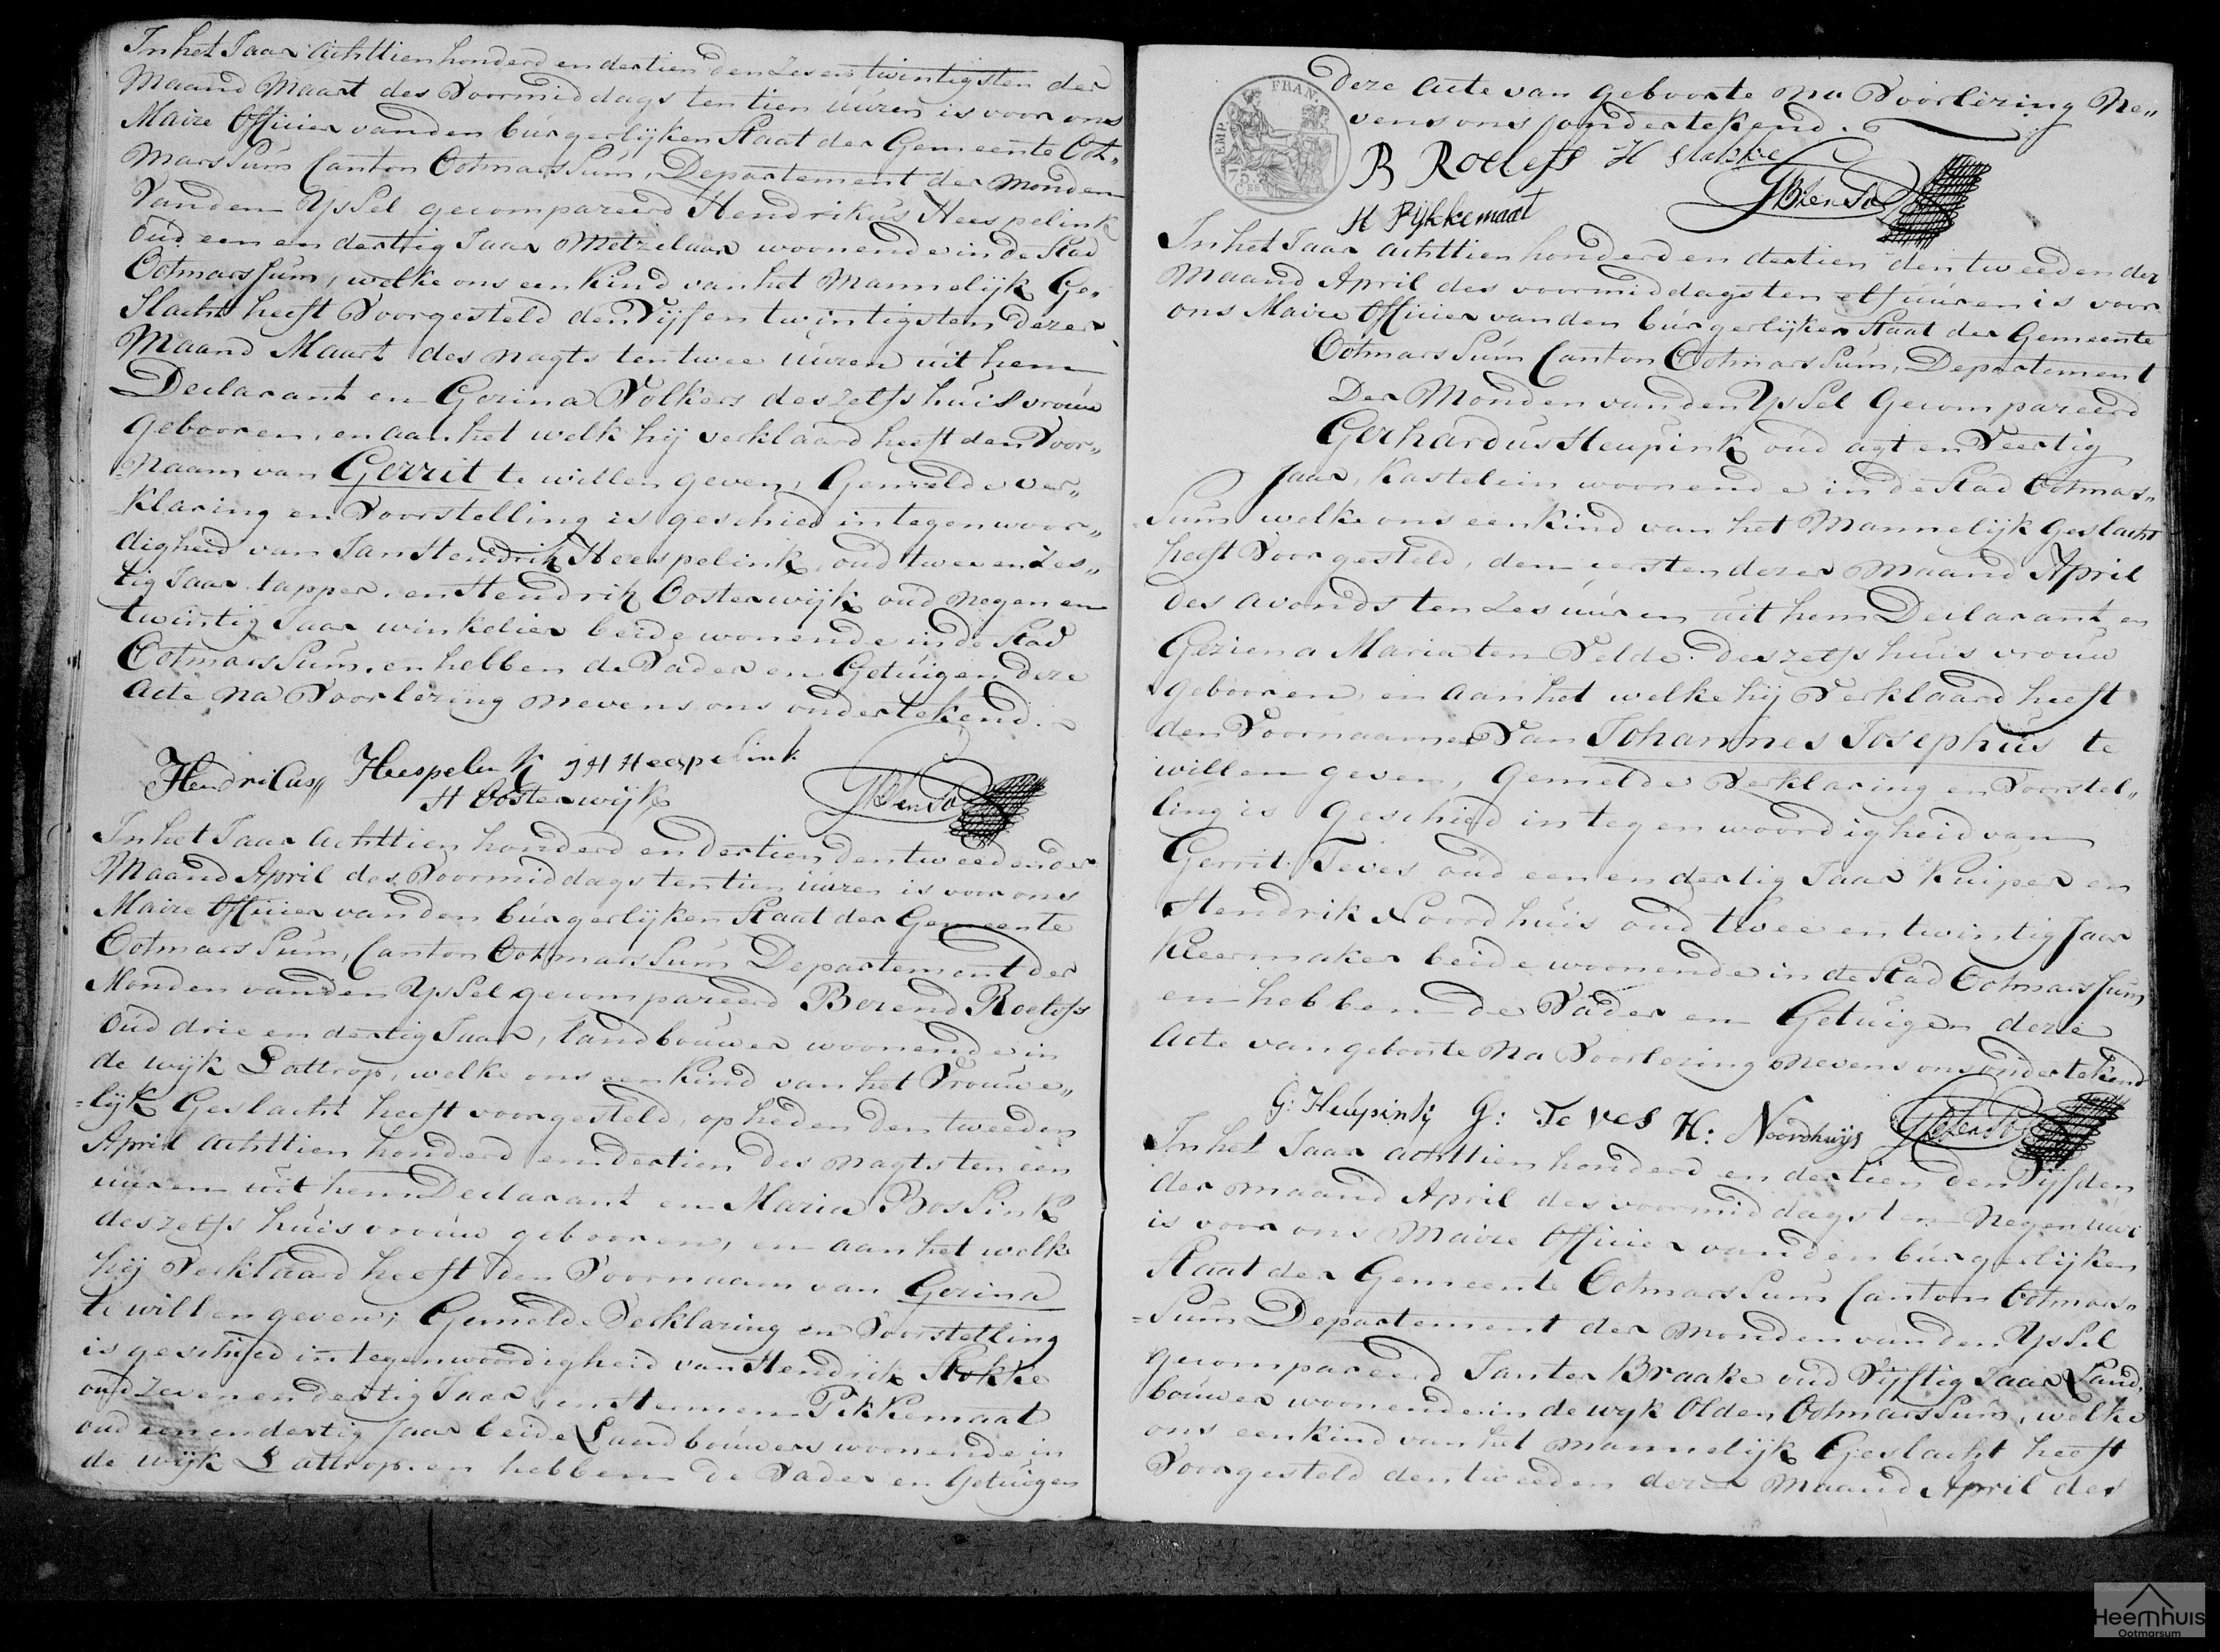 In het Jaar Achttien honderd en dertien den Zes en twintigsten der
Maand Maart des Voormiddags ten tien uuren is voor ons
Maire Officier van den burgerlijken Staat der Gemeente Oot„
marssum Canton Ootmarssum, Departement der Monden
van den Yssel gecompareerd Hendrikus Heespelink
oud een en dertig Jaar Metzelaar woonende in de Stad
Ootmarssum, welke ons een kind van het Mannelijk Ge„
slacht heeft Voorgesteld den Vijf en twintigsten dezer
Maand Maart des nagts ten twee uuren uit hem
Declarant en Gezina Volkers deszelfs huisvrouw
gebooren, en aan het welk hij verklaard heeft den Voor„
naam van Gerrit te willen geven, Gemelde ver„
klaring en Voorstelling is geschied in tegenwoor„
digheid van Jan Hendrik Heespelink, oud twee en Zes„
tig Jaar tapper, en Hendrik Oosterwijk oud negen en
twintig Jaar winkelier beide wonende in de Stad
Ootmarssum, en hebben de Vader en Getuigen deze
Acte na Voorlezing nevens ons ondertekend.
Hendricus„ Heespelink J H Heespelink
H Oosterwijk
In het Jaar Achttien honderd en dertien den tweeden der
Maand April des Voormiddags ten tien uuren is voor ons
Maire Officier van den burgerlijken Staat der Gemeente
Ootmarssum, Canton Ootmarssum Departement der
Monden van den Yssel gecompareerd Berend Roelofs
oud drie en dertig Jaar, landbouwer woonende in
de wijk Lattrop, welke ons een kind van het Vrouwe„
=lijk Geslacht heeft voorgesteld, op heden den tweeden
April achttien honderd en dertien des nagts ten een
uuren uit hem Declarant en Maria Bossink
deszelfs huisvrouw gebooren, en aan het welke
hij Verklaard heeft den Voornaam van Gezina
te willen geven; Gemelde Verklaring en Voorstelling
is geschied in tegenwoordigheid van Hendrik Stokke
oud zeven en dertig Jaar, en Hermen Pikkemaat
oud een en dertig Jaar beide Landbouwers woonende in
de wijk Lattrop. en hebben de Vader en Getuigen
EMP. FRAN.
75. CES
Deze Acte van geboorte na Voorlezing Ne„
vens ons ondertekend.
B Roelefs H Stokke
H Pijkkemaat
In het Jaar achttien honderd en dertien den tweeden der
Maand April des voormiddags ten elf uuren is voor
ons Maire Officier van den burgerlijken Staat der Gemeente
Ootmarssum Canton Ootmarssum, Departement
Der Monden van den Yssel Gecompareerd
Gerhardus Heupink oud agt en Veertig
Jaar, Kastelein woonende in de Stad Ootmars„
=sum welke ons een kind van het Mannelijk Geslacht
heeft Voorgesteld, den eersten dezer Maand April
des avonds ten Zes uuren uit hem Declarant en
Geziena Maria ten Velde. deszelfs huisvrouw
gebooren, en aan het welke hij Verklaard heeft
den Voornaamen Van Johannes Josephus te
willen geven, Gemelde Verklaring en Voorstel„
ling is Geschied in tegenwoordigheid van
Gerrit Teves oud een en dertig Jaar Kuiper en
Hendrik Noordhuis oud twee en twintig Jaar
Kleermaker beide woonende in de Stad Ootmarssum
en hebben de Vader en Getuigen deze
Acte van geboorte na Voorlezing nevens ons ondertekend
G: Heupink G: Teves H: Noordhuijs
In het Jaar Achttien honderd en dertien den Vijfden
der maand April des voormiddags ten Negen uur
is voor ons Maire Officier van den burgerlijken
Staat der Gemeente Ootmarssum Canton Ootmars„
=sum Departement der Monden van den Yssel
gecompareerd Jan ter Braake oud Vijftig Jaar Land„
bouwer woonende in de wyk Olden Ootmarssum, welke
ons een kind van het mannelijk Geslacht heeft
Voorgesteld den tweeden dezer Maand April des
Heemhuis
Ootmarsum